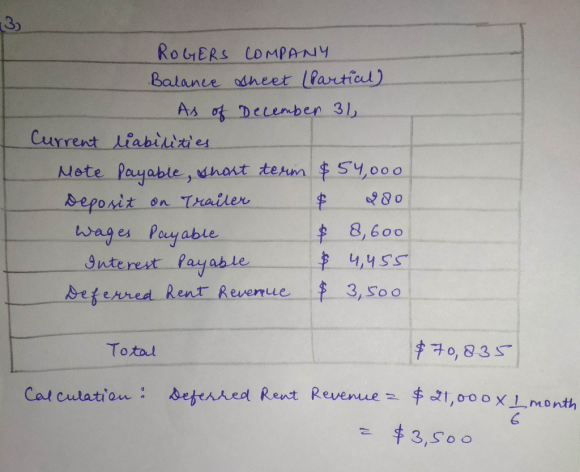 (3)
ROGERS COMPANY
Balance sheet (Partial)
As of December 31,
Current liabilities
Note Payable, short term $ 54,000
Deposit on Trailer $ 280
Wages Payable $ 8,600
Interest Payable $ 4,455
Deferred Rent Revenue $ 3,500
Total $ 70,835
Calculation : Deferred Rent Revenue = $ 21,000 × 1/6 month
= $ 3,500